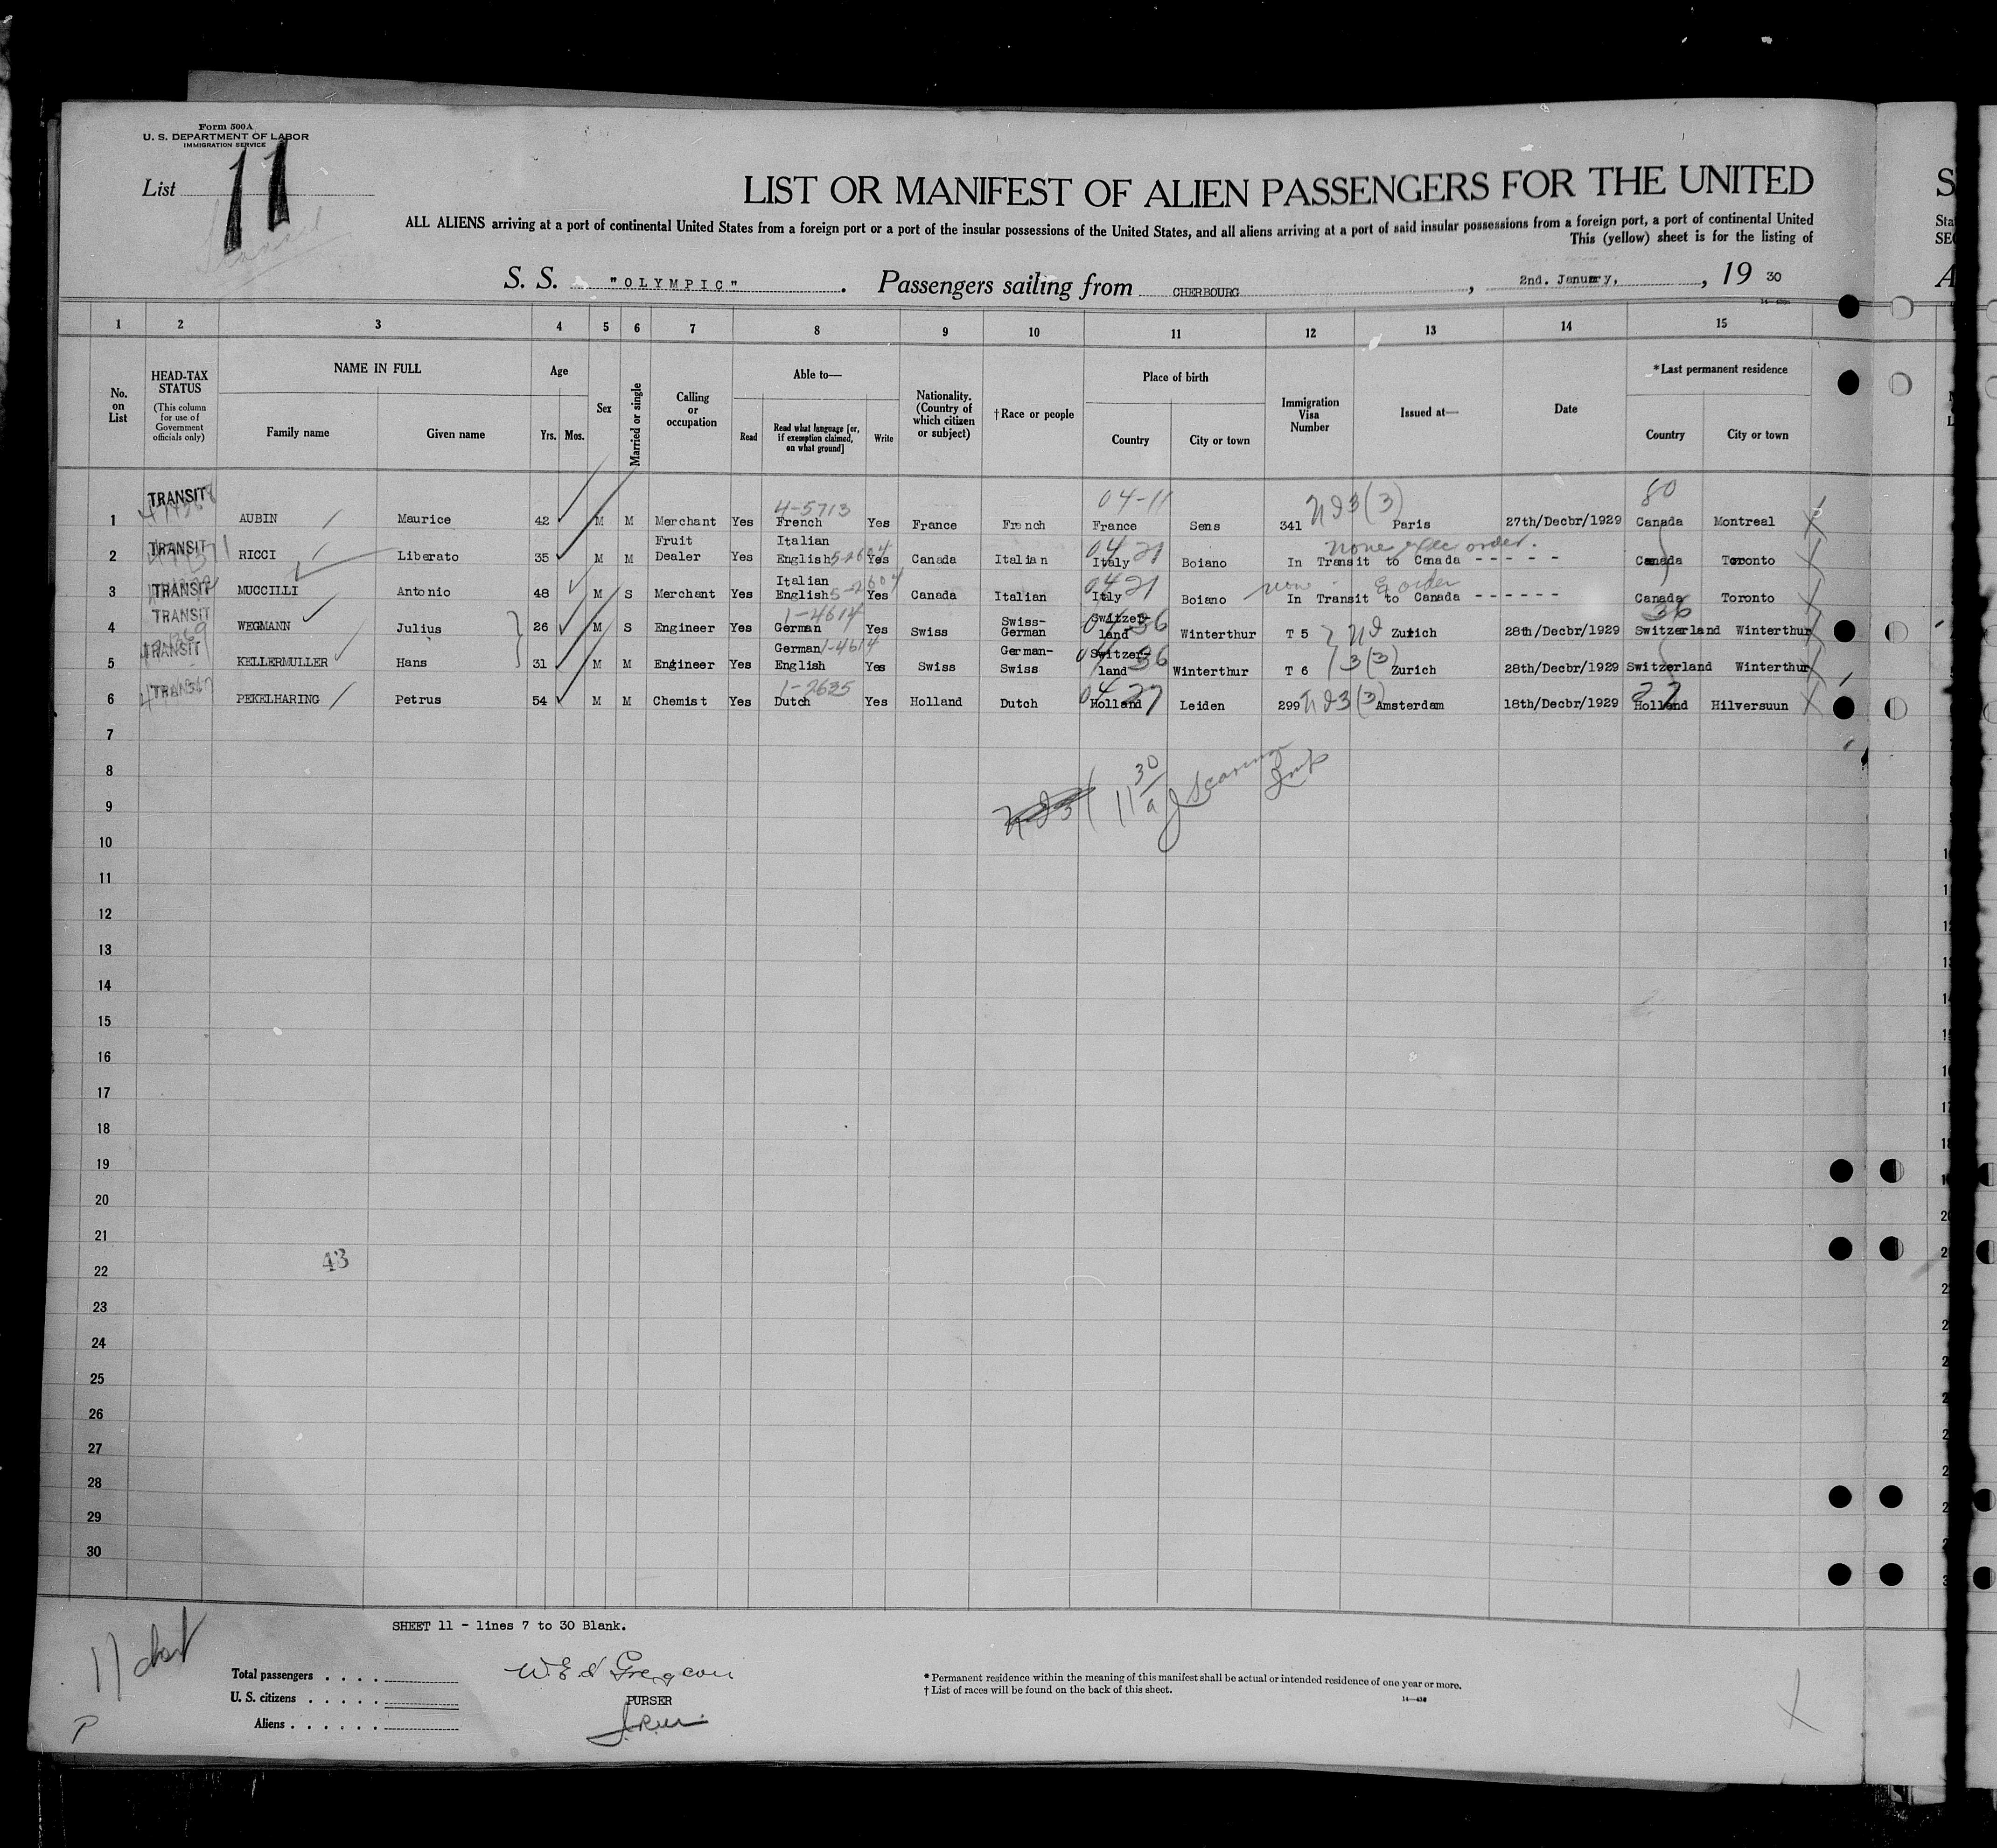 Form 500A
U. S. DEPARTMENT OF LABOR
IMMIGRATION SERVICE
List 11
LIST OR MANIFEST OF ALIEN PASSENGERS FOR THE UNITED
ALL ALIENS arriving at a port of continental United States from a foreign port or a port of the insular possessions of the United States, and all aliens arriving at a port of said insular possessions from a foreign port, a port of continental United
This (yellow) sheet is for the listing of
S. S. "OLYMPIC". Passengers sailing from CHERBOURG, 2nd. January, , 19 30
1 2 3 4 5 6 7 8 9 10 11 12 13 14 15
No. on List
HEAD-TAX STATUS
(This column for use of Government officials only)
NAME IN FULL
Family name Given name
Age
Yrs. Mos.
Sex
Married or single
Calling or occupation
Able to—
Read
Read what language [or, if exemption claimed, on what ground]
Write
Nationality. (Country of which citizen or subject)
†Race or people
Place of birth
Country City or town
Immigration Visa Number
Issued at—
Date
*Last permanent residence
Country City or town
4-5713 04-11 80
1 TRANSIT AUBIN Maurice 42 M M Merchant Yes French Yes France French France Sens 341 (3) Paris 27th/Decbr/1929 Canada Montreal
none exec order.
2 TRANSIT RICCI Liberato 35 M M Fruit Dealer Yes Italian English Yes Canada Italian Italy 04 21 Boiano In Transit to Canada - - - - - Canada Toronto
3 TRANSIT MUCCILLI Antonio 48 M S Merchant Yes Italian English Yes Canada Italian Itly 04 21 Boiano In Transit to Canada - - - - - - Canada Toronto
1-4614 36
4 TRANSIT WEGMANN Julius 26 M S Engineer Yes German Yes Swiss Swiss-German Switzer-land Winterthur T 5 Zurich 28th/Decbr/1929 Switzerland Winterthur
5 TRANSIT KELLERMULLER Hans 31 M M Engineer Yes German English 1-4614 Yes Swiss German-Swiss Switzer-land Winterthur T 6 3(3) Zurich 28th/Decbr/1929 Switzerland Winterthur
1-2635
6 TRANSIT PEKELHARING Petrus 54 M M Chemist Yes Dutch Yes Holland Dutch Holland 04 27 Leiden 299 Amsterdam 18th/Decbr/1929 Holland 27 Hilversuun
7
8
9
10
11
12
13
14
15
16
17
18
19
20
21
43
22
23
24
25
26
27
28
29
30
SHEET 11 - lines 7 to 30 Blank.
Total passengers . . . .
U. S. citizens . . . . .
Aliens . . . . . .
PURSER
* Permanent residence within the meaning of this manifest shall be actual or intended residence of one year or more.
† List of races will be found on the back of this sheet.